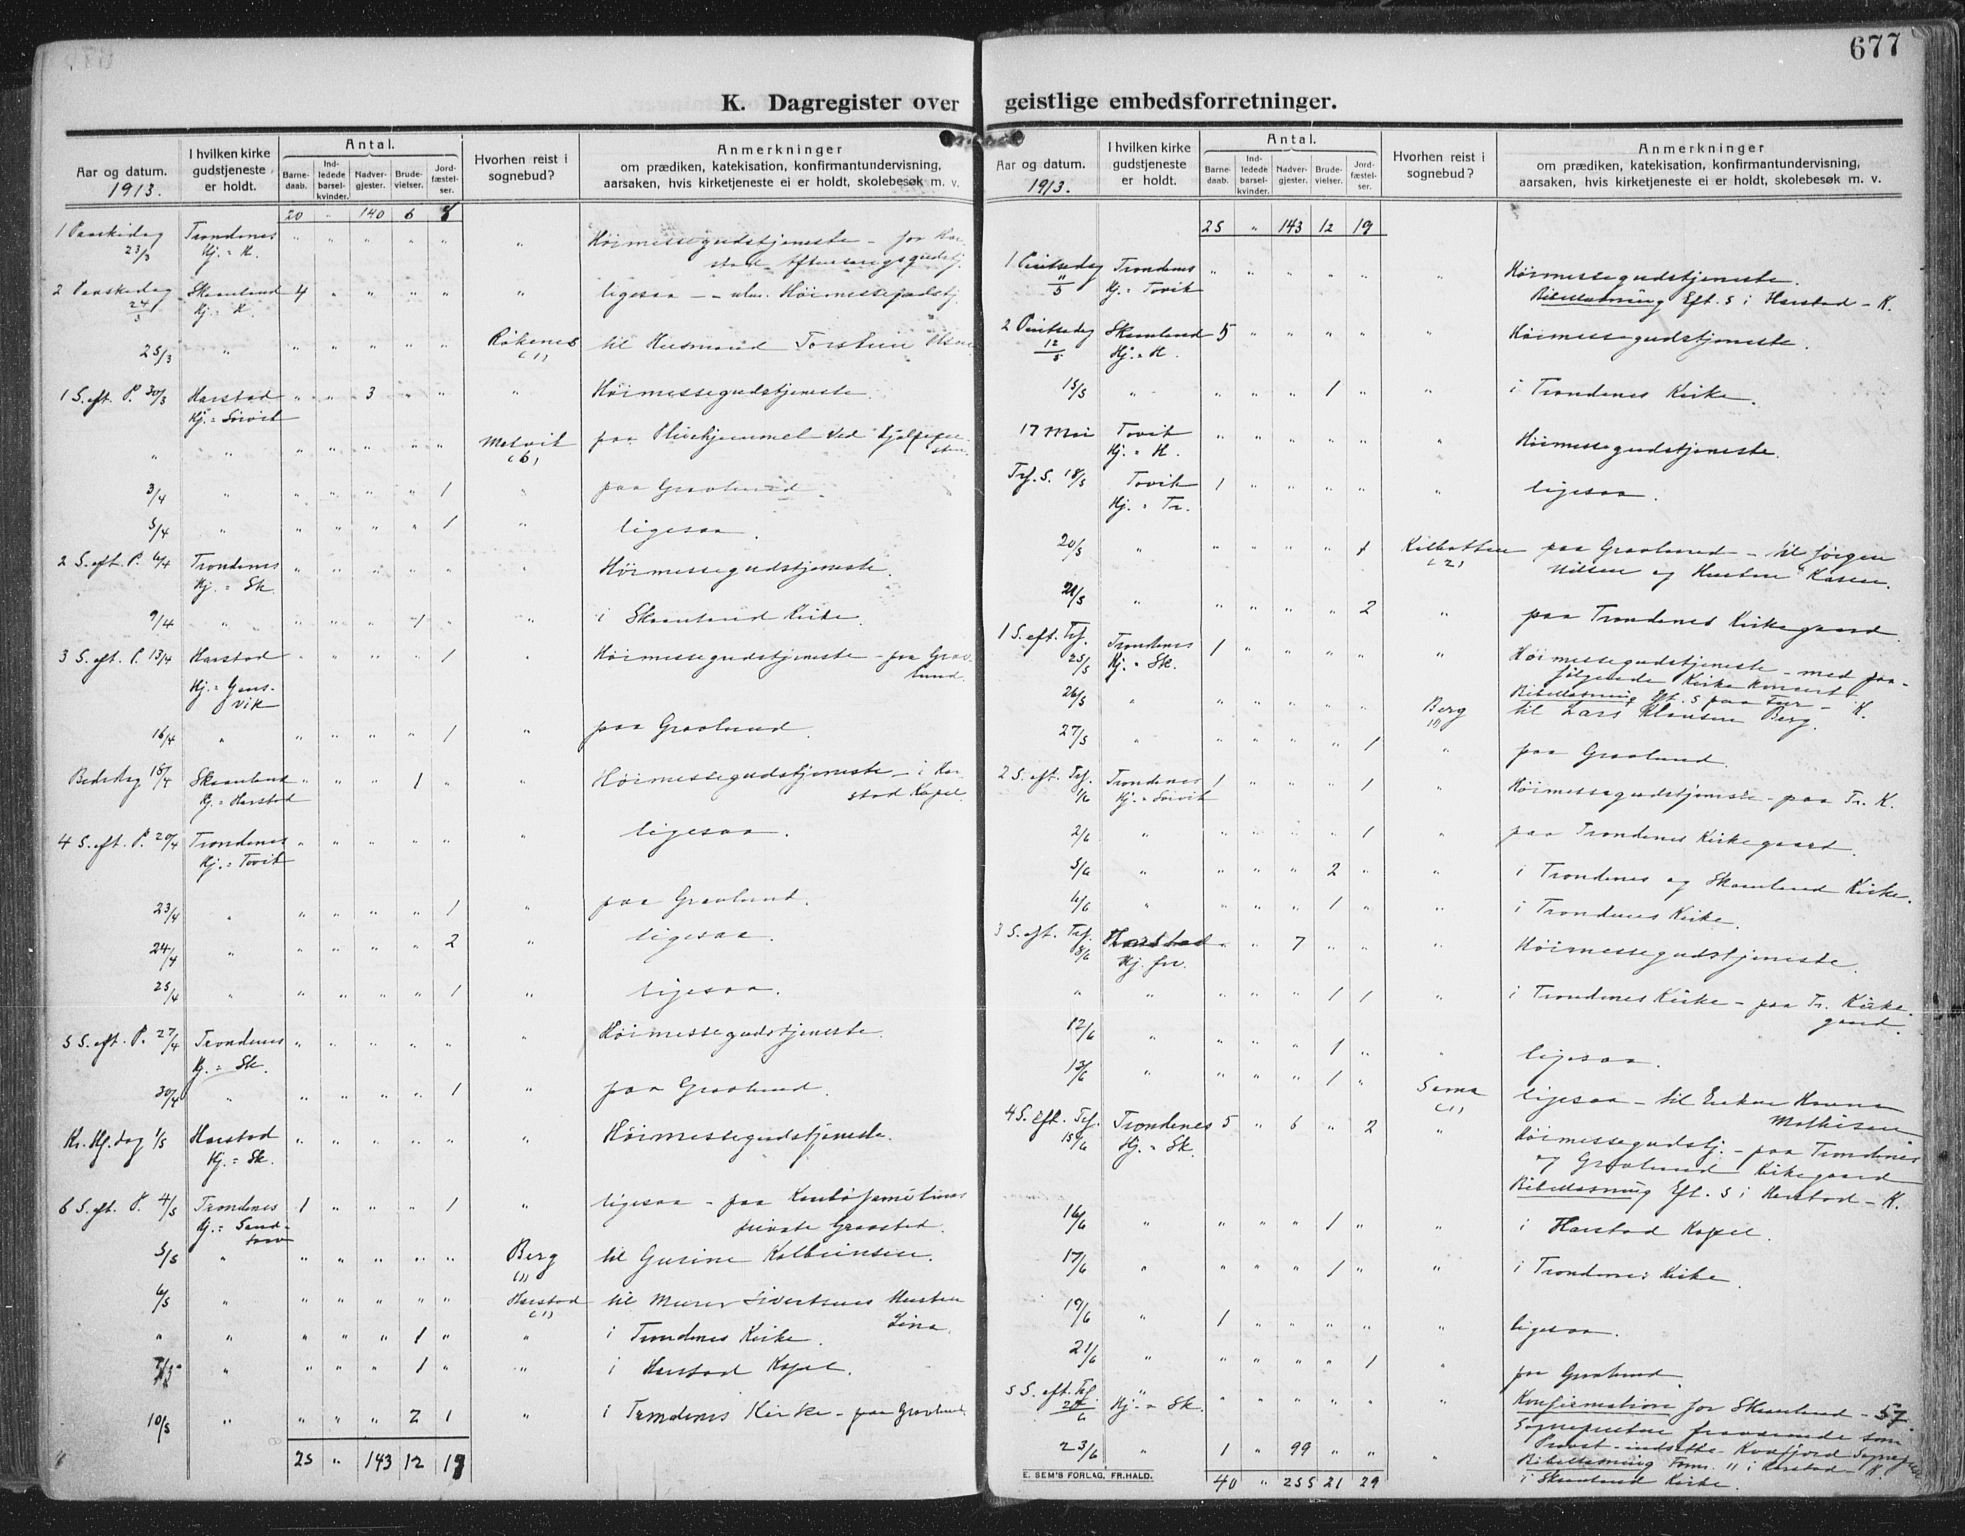 677
K. Dagregister over geistlige embedsforretninger.
Aar og datum. 1913.
I hvilken kirke gudstjeneste er holdt.
Antal.
Barnedaab.
Indledede barselkvinder.
Nadvergjester.
Brudevielser.
Jordfæstelser.
Hvorhen reist i sognebud?
Anmerkninger
om prædiken, katekisation, konfirmantundervisning,
aarsaken, hvis kirketjeneste ei er holdt, skolebesøk m. v.
20 " 140 6 8
1 Paaskedag 23/3 Trondenes " " " " " " Høimessegudstjeneste – for Har-
Hj. = H. stad Aftensangsgudstj.
2 Paaskedag 24/3 Skaanland 4 " " " " " ligesaa – Høimessegudstj.
Hj. = H.
25/3 " " " " " " Røkenes (1) til Husmand Torstein Olsen
1 S. eft. P. 30/3 Harstad " " 3 " " " Høimessegudstjeneste.
Hj. = Sørvik
" " " " " " " Medvik (6) paa Pleiehjemmet ved
3/4 " " " " " 1 " paa Gravlund.
5/4 " " " " " 1 " ligesaa.
2 S. eft. P. 6/4 Trondenes " " " " " " Høimessegudstjeneste.
Hj. = Sk.
9/4 " " " " 1 " " i Skaanland Kirke.
3 S. eft. P. 13/4 Harstad " " " " 1 " Høimessegudstjeneste – paa Grav-
Hj. = Gans- lund.
vik
16/4 " " " " " 1 " paa Gravlund.
Bededag 18/4 Skaanland " " " 1 " " Høimessegudstjeneste – i Har-
Hj. = Harstad stad Kapel.
4 S. eft. P. 20/4 Trondenes " " " " " " ligesaa.
Hj. = Tovik
23/4 " " " " " 1 " paa Gravlund.
24/4 " " " " " 2 " ligesaa.
25/4 " " " " " 1 " ligesaa.
5 S. eft. P. 27/4 Trondenes " " " " " " Høimessegudstjeneste.
Hj. = Sk.
30/4 " " " " " 1 " paa Gravlund.
Kr. Hf. dag 1/5 Harstad " " " " " " Høimessegudstjeneste.
Hj. = Sk.
6 S. eft. P. 4/5 Trondenes 1 " " " 1 " ligesaa – paa
Hj. = Sand- private Gravsted.
torv
5/5 " " " " " " Berg (1) til Gurine Kolbeinsen.
6/5 " " " " " " Harstad (1) til Murer Sivertsens Hustru
Lina.
" " " " " 1 " " i Trondenes Kirke.
7/5 " " " " 1 " " i Harstad Kapel.
10/5 " " " " 2 1 " i Trondenes Kirke – paa Gravlund.
25 " 143 12 19
Aar og datum. 1913.
I hvilken kirke gudstjeneste er holdt.
Antal.
Barnedaab.
Indledede barselkvinder.
Nadvergjester.
Brudevielser.
Jordfæstelser.
Hvorhen reist i sognebud?
Anmerkninger
om prædiken, katekisation, konfirmantundervisning,
aarsaken, hvis kirketjeneste ei er holdt, skolebesøk m. v.
25 " 143 12 19
1 Pintsedag 11/5 Trondenes " " " " " " Høimessegudstjeneste.
Hj. = Tovik Bibellæsning Eft. 5 i Harstad – K.
2 Pintsedag 12/5 Skaanland 5 " " " " " Høimessegudstjeneste.
Hj. = H.
15/5 " " " " 1 " " i Trondenes Kirke.
17 Mai Tovik " " " " " " Høimessegudstjeneste.
Hj. = H.
Tref. S. 18/5 Tovik 1 " " " " " ligesaa.
Hj. = Tr.
20/5 " " " " " 1 Kilbotten (2) paa Gravlund – til Jørgen
Nilsen og Hustru Karen.
21/5 " " " " " 2 " paa Trondenes Kirkegaard.
1 S. eft. Tref. 25/5 Trondenes 1 " " " " " Høimessegudstjeneste – med paa-
Hj. = Sk. følgende Kirkekonsert.
Bibellæsning Eft. 5 paa – K.
26/5 " " " " " " Berg (1) til Lars Klausen Berg.
27/5 " " " " " 1 " paa Gravlund.
2 S. eft. Tref. 1/6 Trondenes 1 " " " 1 " Høimessegudstjeneste – paa Tr. K.
Hj. = Sørvik
2/6 " " " " " 1 " paa Trondenes Kirkegaard.
5/6 " " " " 2 " " i Trondenes og Skaanland Kirke.
6/6 " " " " 1 " " i Trondenes Kirke.
3 S. eft. Tref. 8/6 Harstad " " 7 " " " Høimessegudstjeneste.
Hj. frv.
" " " " " 1 1 " i Trondenes Kirke – paa Tr. Kirke-
gaard.
12/6 " " " " 1 " " ligesaa.
13/6 " " " " 1 " Sama (1) ligesaa – til Enken
Mathisen
4 S. eft. Tref. 15/6 Trondenes 5 " 6 " 2 " Høimessegudstj. – paa Trondenes
Hj. = Sk. og Gravlund Kirkegaard
Bibellæsning Eft. 5 i Harstad – K.
16/6 " " " " 1 " " i Harstad Kapel.
17/6 " " " " 1 " " i Trondenes Kirke.
19/6 " 1 " " " " " ligesaa.
21/6 " " " " " 1 " paa Gravlund.
5 S. eft. Tref. 22/6 " " " " " " " Konfirmation for Skaanland – 57.
Hj. = Sk. Sognepresten fraværende som
Provst – indsatte Kvæfjord Sognepr.
23/6 " 1 " 99 " " " Bibellæsning Form. 11 i Harstad – K.
i Skaanland Kirke.
40 " 255 21 29
E. SEM'S FORLAG, FR.HALD.